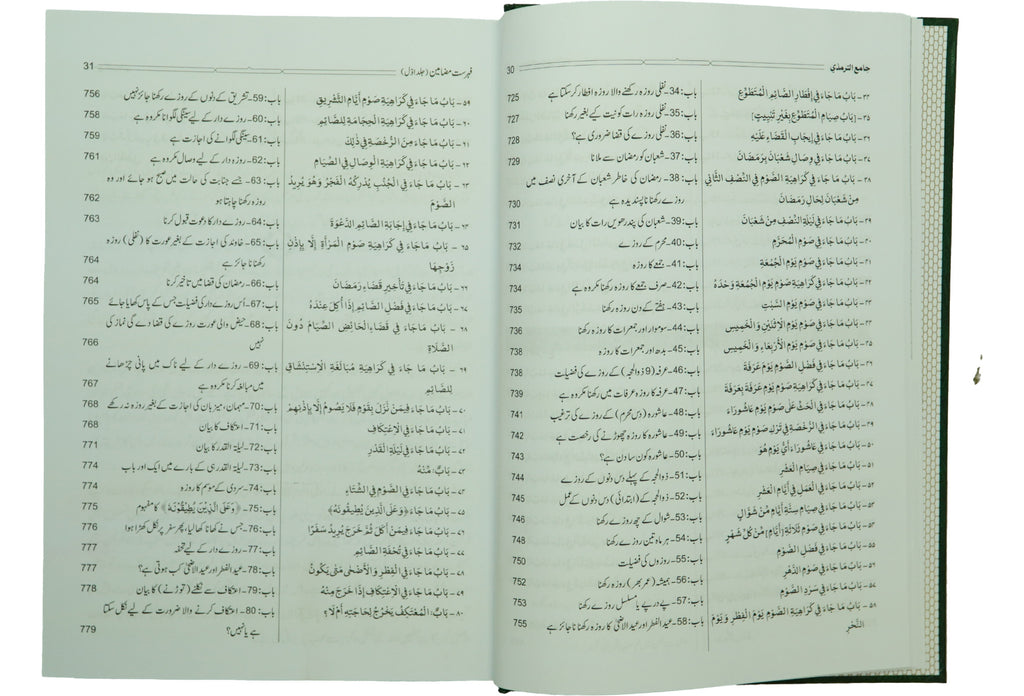 جامع الترمذي 30
٣٤ - بَابُ مَا جَاءَ فِي إِفْطَارِ الصَّائِمِ الْمُتَطَوِّعِ باب: 34- نفلی روزہ رکھنے والا روزہ افطار کرسکتا ہے 725
٣٥ - [بَابُ صِيَامِ الْمُتَطَوِّعِ بِغَيْرِ تَبْيِيتٍ] باب: 35- نفلی روزہ رات کو نیت کیے بغیر رکھنا 727
٣٦ - بَابُ مَا جَاءَ فِي إِيجَابِ الْقَضَاءِ عَلَيْهِ باب: 36- نفلی روزے کی قضا ضروری ہے؟ 727
٣٧ - بَابُ مَا جَاءَ فِي وِصَالِ شَعْبَانَ بِرَمَضَانَ باب: 37- شعبان کو رمضان سے ملانا 729
٣٨ - بَابُ مَا جَاءَ فِي كَرَاهِيَةِ الصَّوْمِ فِي النِّصْفِ الثَّانِي باب: 38- رمضان کی خاطر شعبان کے آخری نصف میں
مِنْ شَعْبَانَ لِحَالِ رَمَضَانَ روزے رکھنا ناپسندیدہ ہے 730
٣٩ - بَابُ مَا جَاءَ فِي لَيْلَةِ النِّصْفِ مِنْ شَعْبَانَ باب: 39- شعبان کی پندرھویں رات کا بیان 731
٤٠ - بَابُ مَا جَاءَ فِي صَوْمِ الْمُحَرَّمِ باب: 40- محرم کے روزے 732
٤١ - بَابُ مَا جَاءَ فِي صَوْمِ يَوْمِ الْجُمُعَةِ باب: 41- جمعے کا روزہ 734
٤٢ - بَابُ مَا جَاءَ فِي كَرَاهِيَةِ صَوْمِ يَوْمِ الْجُمُعَةِ وَحْدَهُ باب: 42- صرف جمعے کا روزہ رکھنا مکروہ ہے 734
٤٣ - بَابُ مَا جَاءَ فِي صَوْمِ يَوْمِ السَّبْتِ باب: 43- ہفتے کے دن روزہ رکھنا 735
٤٤ - بَابُ مَا جَاءَ فِي صَوْمِ يَوْمِ الْإِثْنَيْنِ وَالْخَمِيسِ باب: 44- سوموار اور جمعرات کا روزہ رکھنا 736
٤٥ - بَابُ مَا جَاءَ فِي صَوْمِ يَوْمِ الْأَرْبِعَاءِ وَالْخَمِيسِ باب: 45- بدھ اور جمعرات کا روزہ 738
٤٦ - بَابُ مَا جَاءَ فِي فَضْلِ الصَّوْمِ يَوْمَ عَرَفَةَ باب: 46- عرفہ (9 ذوالحجہ) کے روزے کی فضیلت 738
٤٧ - بَابُ مَا جَاءَ فِي كَرَاهِيَةِ صَوْمِ يَوْمِ عَرَفَةَ بِعَرَفَةَ باب: 47- عرفہ کا روزہ عرفات میں رکھنا مکروہ ہے 739
٤٨ - بَابُ مَا جَاءَ فِي الْحَثِّ عَلَى صَوْمِ يَوْمِ عَاشُورَاءَ باب: 48- عاشورہ (دس محرم) کے روزے کی ترغیب 741
٤٩ - بَابُ مَا جَاءَ فِي الرُّخْصَةِ فِي تَرْكِ صَوْمِ يَوْمِ عَاشُورَاءَ باب: 49- عاشورہ کا روزہ چھوڑنے کی رخصت ہے 742
٥٠ - بَابُ مَا جَاءَ فِي عَاشُورَاءَ أَيُّ يَوْمٍ هُوَ باب: 50- عاشورہ کون سا دن ہے؟ 743
٥١ - بَابُ مَا جَاءَ فِي صِيَامِ الْعَشْرِ باب: 51- ذوالحجہ کے پہلے دس دنوں کے روزے 744
٥٢ - بَابُ مَا جَاءَ فِي الْعَمَلِ فِي أَيَّامِ الْعَشْرِ باب: 52- ذوالحجہ کے (ابتدائی) دس دنوں کے عمل 745
٥٣ - بَابُ مَا جَاءَ فِي صِيَامِ سِتَّةِ أَيَّامٍ مِنْ شَوَّالٍ باب: 53- شوال کے چھ روزے رکھنا 746
٥٤ - بَابُ مَا جَاءَ فِي صَوْمِ ثَلَاثَةِ [أَيَّامٍ] مِنْ كُلِّ شَهْرٍ باب: 54- ہر ماہ تین روزے رکھنا 748
٥٥ - بَابُ مَا جَاءَ فِي فَضْلِ الصَّوْمِ باب: 55- روزوں کی فضیلت 750
٥٦ - بَابُ مَا جَاءَ فِي صَوْمِ الدَّهْرِ باب: 56- ہمیشہ (عمر بھر) روزہ رکھنا 752
٥٧ - بَابُ مَا جَاءَ فِي سَرْدِ الصَّوْمِ باب: 57- پے در پے یا مسلسل روزے رکھنا 753
٥٨ - بَابُ مَا جَاءَ فِي كَرَاهِيَةِ الصَّوْمِ يَوْمَ الْفِطْرِ وَيَوْمَ باب: 58- عیدالفطر اور عید الاضحیٰ کا روزہ رکھنا ناجائز ہے 755
النَّحْرِ
فہرست مضامین (جلد اوّل) 31
٥٩ - بَابُ مَا جَاءَ فِي كَرَاهِيَةِ صَوْمِ أَيَّامِ التَّشْرِيقِ باب: 59- تشریق کے دنوں کے روزے رکھنا جائز نہیں 756
٦٠ - بَابُ مَا جَاءَ فِي كَرَاهِيَةِ الْحِجَامَةِ لِلصَّائِمِ باب: 60- روزے دار کے لیے سینگی لگوانا مکروہ ہے 758
٦١ - بَابُ مَا جَاءَ مِنَ الرُّخْصَةِ فِي ذٰلِكَ باب: 61- سینگی لگوانے کی اجازت ہے 759
٦٢ - بَابُ مَا جَاءَ فِي كَرَاهِيَةِ الْوِصَالِ فِي الصِّيَامِ باب: 62- روزہ دار کے لیے وصال مکروہ ہے 761
٦٣ - بَابُ مَا جَاءَ فِي الْجُنُبِ يُدْرِكُهُ الْفَجْرُ وَهُوَ يُرِيدُ باب: 63- جسے جنابت کی حالت میں صبح ہو جائے اور وہ
الصَّوْمَ روزہ رکھنا چاہتا ہو 762
٦٤ - بَابُ مَا جَاءَ فِي إِجَابَةِ الصَّائِمِ الدَّعْوَةَ باب: 64- روزے دار کا دعوت قبول کرنا 763
٦٥ - بَابُ مَا جَاءَ فِي كَرَاهِيَةِ صَوْمِ الْمَرْأَةِ إِلَّا بِإِذْنِ باب: 65- خاوند کی اجازت کے بغیر عورت کا (نفلی) روزہ
زَوْجِهَا رکھنا ناجائز ہے 764
٦٦ - بَابُ مَا جَاءَ فِي تَأْخِيرِ قَضَاءِ رَمَضَانَ باب: 66- رمضان کی قضا میں تاخیر کرنا 764
٦٧ - بَابُ مَا جَاءَ فِي فَضْلِ الصَّائِمِ إِذَا أُكِلَ عِنْدَهُ باب: 67- اُس روزے دار کی فضیلت جس کے پاس کھایا جائے 765
٦٨ - بَابُ مَا جَاءَ فِي قَضَاءِ الْحَائِضِ الصِّيَامَ دُونَ باب: 68- حیض والی عورت روزے کی قضا دے گی نماز کی
الصَّلَاةِ نہیں 766
٦٩ - بَابُ مَا جَاءَ فِي كَرَاهِيَةِ مُبَالَغَةِ الْاِسْتِنْشَاقِ باب: 69- روزے دار کے لیے ناک میں پانی چڑھانے
لِلصَّائِمِ میں مبالغہ کرنا مکروہ ہے 767
٧٠ - بَابُ مَا جَاءَ فِيمَنْ نَزَلَ بِقَوْمٍ فَلَا يَصُومُ إِلَّا بِإِذْنِهِمْ باب: 70- مہمان، میزبان کی اجازت کے بغیر روزہ نہ رکھے 768
٧١ - بَابُ مَا جَاءَ فِي الْاِعْتِكَافِ باب: 71- اعتکاف کا بیان 768
٧٢ - بَابُ مَا جَاءَ فِي لَيْلَةِ الْقَدْرِ باب: 72- لیلۃ القدر کا بیان 771
٧٣ - بَابٌ: مِنْهُ باب: 73- لیلۃ القدر ہی کے بارے میں ایک اور باب 774
٧٤ - بَابُ مَا جَاءَ فِي الصَّوْمِ فِي الشِّتَاءِ باب: 74- سردی کے موسم کا روزہ 774
٧٥ - بَابُ مَا جَاءَ ﴿وَعَلَى الَّذِينَ يُطِيقُونَهُ﴾ باب: 75- ﴿وَعَلَى الَّذِيْنَ يُطِيْقُوْنَهُ﴾ کا مفہوم 775
٧٦ - بَابُ مَا جَاءَ فِيمَنْ أَكَلَ ثُمَّ خَرَجَ يُرِيدُ سَفَرًا باب: 76- جس نے کھانا کھایا، پھر سفر پر نکل کھڑا ہوا 776
٧٧ - بَابُ مَا جَاءَ فِي تُحْفَةِ الصَّائِمِ باب: 77- روزے دار کے لیے تحفہ 777
٧٨ - بَابُ مَا جَاءَ فِي الْفِطْرِ وَالْأَضْحٰى مَتٰى يَكُونُ باب: 78- عیدالفطر اور عیدالاضحیٰ کب ہوتی ہے؟ 777
٧٩ - بَابُ مَا جَاءَ فِي الْاِعْتِكَافِ إِذَا خَرَجَ مِنْهُ باب: 79- اعتکاف سے نکلنے (توڑنے) کا بیان 778
٨٠ - بَابٌ: الْمُعْتَكِفُ يَخْرُجُ لِحَاجَتِهِ أَمْ لَا؟ باب: 80- اعتکاف کرنے والا ضرورت کے لیے نکل سکتا
ہے یا نہیں؟ 779